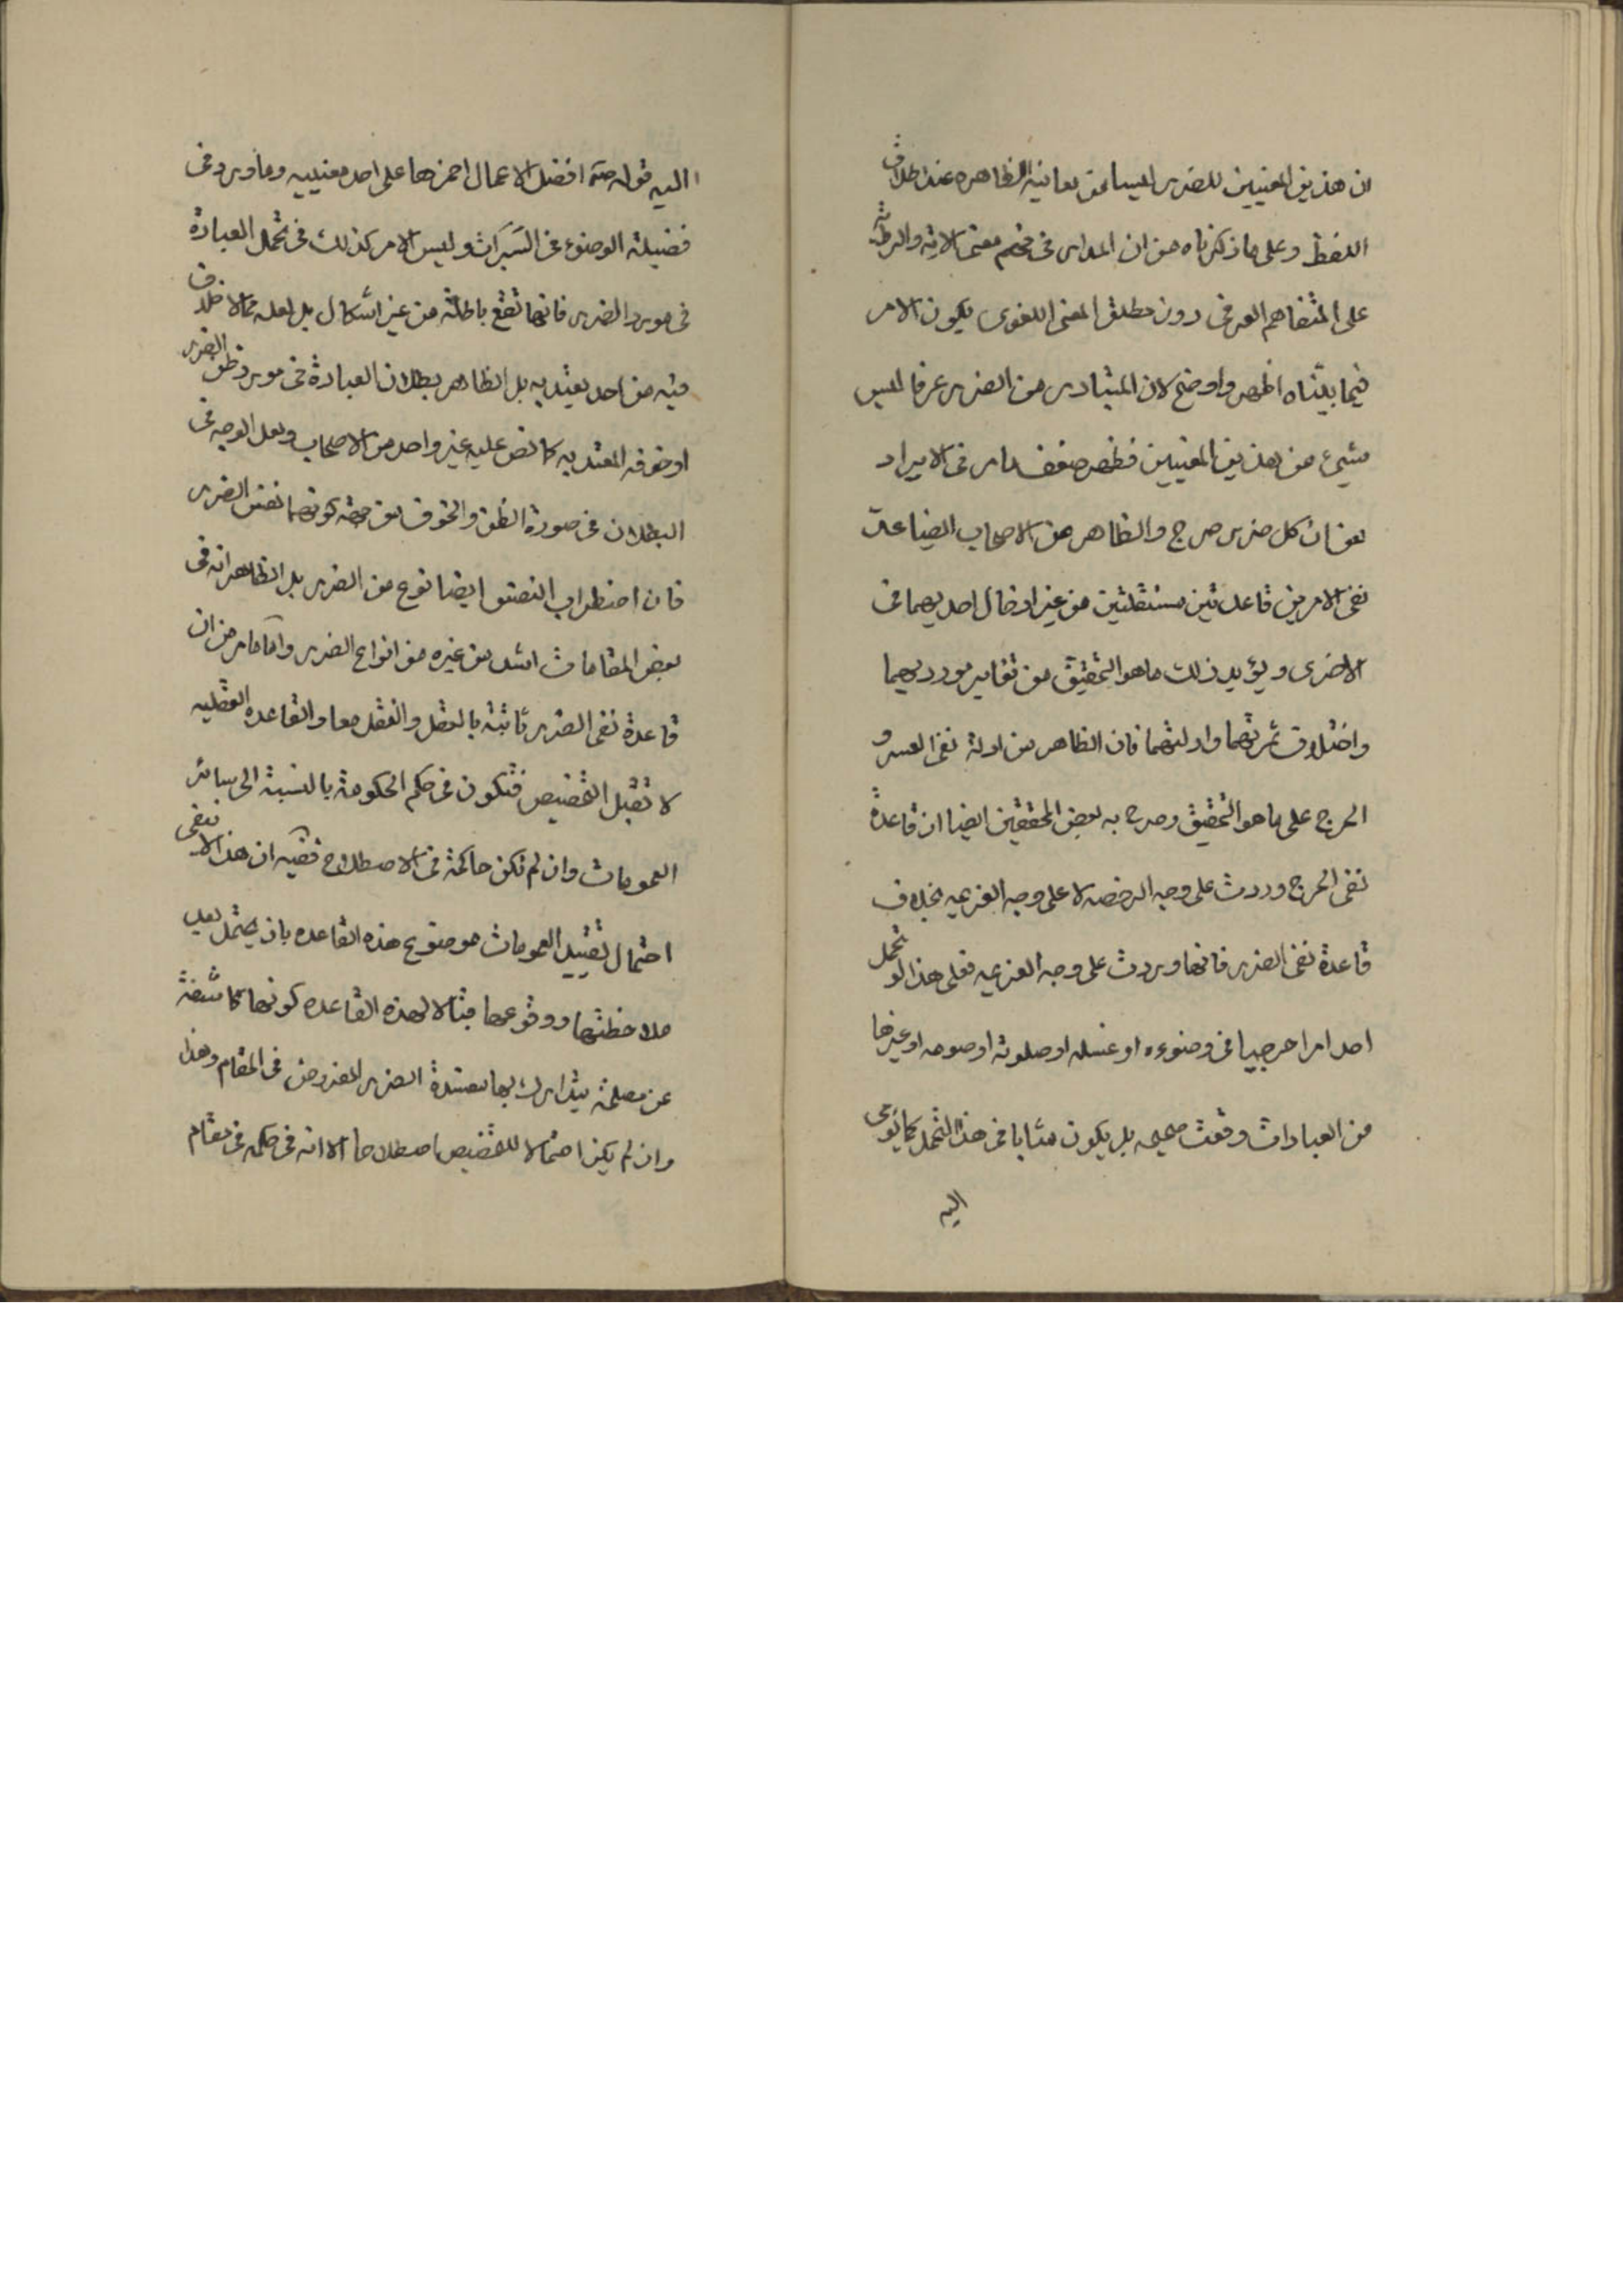 ان هذين المعنيين للضرر ليسا من معانيه الظاهره عند اطلاق
اللفظ وعلى ما ذكرناه من ان المدار فى فهم معنى الاية والرواية
على المتفاهم العرفى دون مطلق المعنى اللغوى يكون الامر
فيما بيّناه اظهر واوضح لان المتبادر من الضرر عرفا ليس
بشيء من هذين المعنيين فظهر ضعف ما مر فى الايراد
من ان كل ضرر حرج والظاهر من الاصحاب ايضا عدّ
نفى الامرين قاعدتين مستقلتين من غير ادخال احديهما فى
الاخرى ويؤيد ذلك ما هو التحقيق من تغاير مورديهما
واختلاف ثمرتهما وادلتهما فان الظاهر من ادلة نفى العسر و
الحرج على ما هو التحقيق وصرح به بعض المحققين ايضا ان قاعدة
نفى الحرج وردت على وجه الرخصه لا على وجه العزيمه بخلاف
قاعدة نفى الضرر فانها وردت على وجه العزيمه فعلى هذا لو تحمل
احد امرا حرجيا فى وضوءه او غسله او صلوته او صومه او غيرها
من العبادات وقعت صحيحه بل يكون مثابا فى هذا التحمل كما يومى
اليه
اليه قوله صـ افضل الاعمال احمزها على احد معنييه وما ورد فى
فضيلة الوضوء فى السَبَرَات وليس الامر كذلك فى تحمل العبادة
فى مورد الضرر فانها تقع باطلة من غير اشكال بل لعله مما لا خلاف
فيه من احد يعتد به بل الظاهر بطلان العبادة فى مورد ظن الضرر
او خوفه المعتد به كما نص عليه غير واحد من الاصحاب ولعل الوجه فى
البطلان فى صورة الظن والخوف من جهة كونهما نفس الضرر
فان اضطراب النفس ايضا نوع من الضرر بل الظاهر انه فى
بعض المقامات اشد من غيره من انواع الضرر وامّا ما مر من ان
قاعدة نفى الضرر ثابتة بالعقل والنقل معا والقاعده العقليه
لا تقبل التخصيص فتكون فى حكم الحكومة بالنسبة الى سائر
العمومات وان لم تكن حاكمة فى الاصطلاح ففيه ان هذا لا ينفى
احتمال تقييد العمومات موضوع هذه القاعده بان يحتمل بعد
ملاحظتها ووقوعها مقابلا لهذه القاعده كونها كاشفة
عن مصلحة يتدارك بها مفسدة الضرر المفروض فى المقام وهذا
وان لم يكن احتمالا للتخصيص اصطلاحا الا انه فى حكمه فى مقام